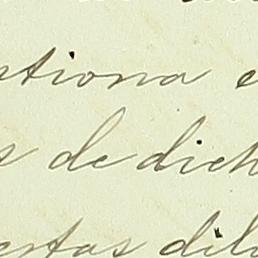 stiona e
s de dich
ertas dilo